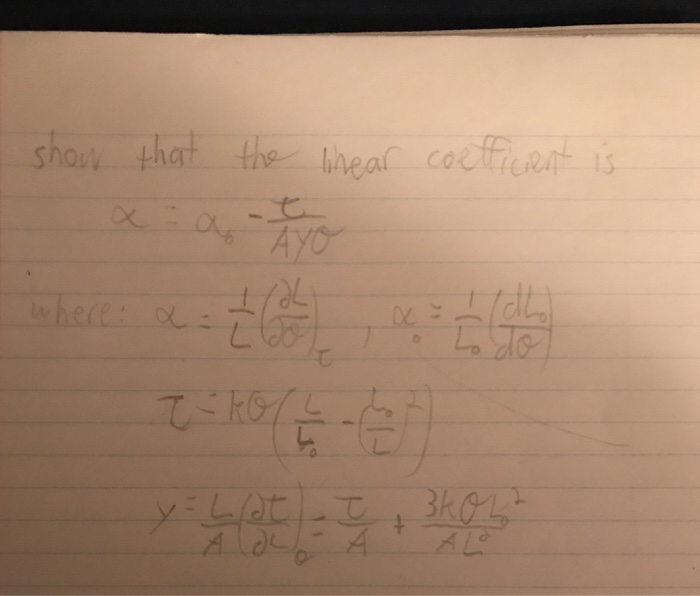 show that the linear coefficient is
α = α₀ - τ/(AYθ)
where: α = 1/L (∂L/∂θ)_τ , α₀ = 1/L₀ (dL₀/dθ)
τ = kθ (L/L₀ - (L₀/L)²)
Y = L/A (∂τ/∂L)_θ = τ/A + 3kθL₀²/AL²